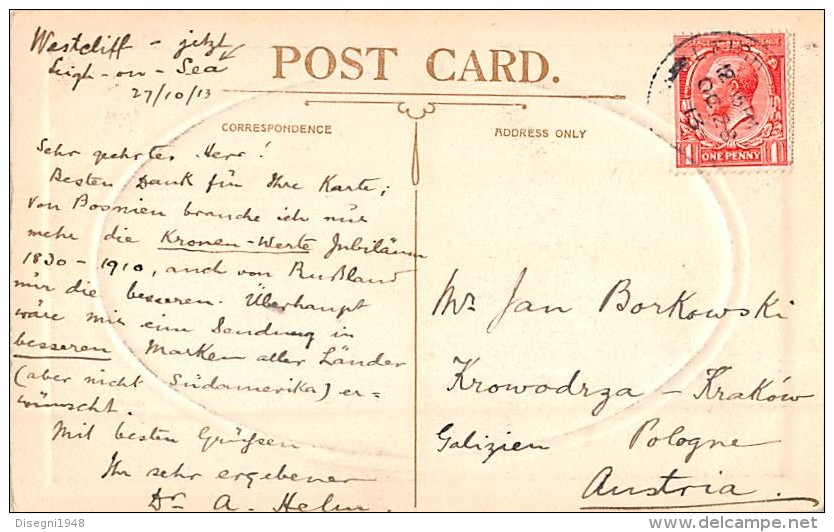 Westcliff – jetzt
Leigh-on-Sea
27/10/13
POST CARD.
CORRESPONDENCE
ADDRESS ONLY
Sehr geehrter Herr!
Besten Dank für Ihre Karte;
von Bosnien brauche ich nur
mehr die Kronen-Werte Jubiläum
1830 – 1910, auch von Rußland
nur die besseren. Überhaupt
wäre mir eine Sendung in
besseren Marken aller Länder
(aber nicht Südamerika) er=
wünscht.
Mit besten Grüßen
Ihr sehr ergebener
Dr A. Helm.
ONE PENNY
1 1
OC 28
13
Mr. Jan Borkowski
Krowodrza – Kraków
Galizien Pologne
Austria.
Disegni1948
delcampe.net